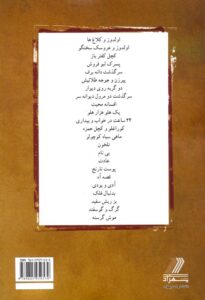 اولدوز و کلاغ ها
اولدوز و عروسک سخنگو
کچل کفتر باز
پسرک لبو فروش
سرگذشت دانه برف
پیرزن و جوجه طلاییش
دو گربه روی دیوار
سرگذشت دو مرول دیوانه سر
افسانه محبت
یک هلو هزار هلو
۲۴ ساعت در خواب و بیداری
کوراغلو و کچل حمزه
ماهی سیاه کوچولو
تلخون
بی نام
عادت
پوست نارنج
قصه آه
آدی و بودی
بدنبال فلک
بز ریش سفید
گرگ و گوسفند
موش گرسنه
بهزاد